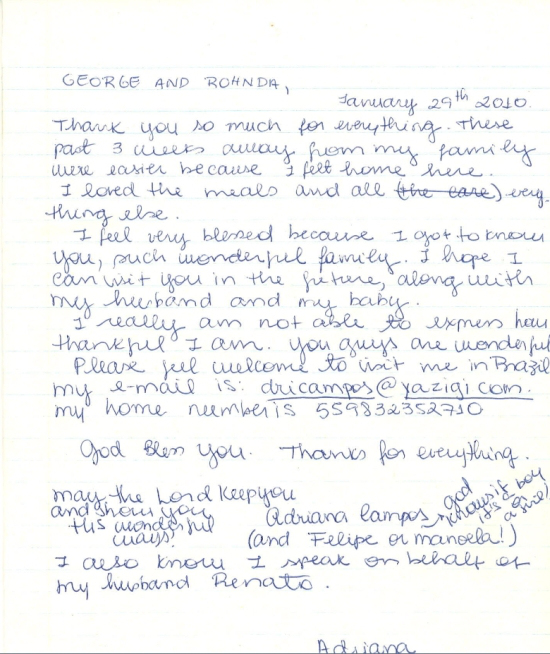 GEORGE AND ROHNDA,
January 29th 2010.
Thank you so much for everything. These
past 3 weeks away from my family
were easier because I felt home here.
I loved the meals and all (the care) every-
thing else.
I feel very blessed because I got to know
you, such wonderful family. I hope I
can visit you in the future, along with
my husband and my baby.
I really am not able to express how
thankful I am. You guys are wonderful
Please feel welcome to visit me in Brazil
my e-mail is: dricampos@yazigi.com.
my home number is 559832352710
God Bless You. Thanks for everything.
may the Lord keep you
and show you
His wonderful
ways!
Adriana Campos
God
knows if boy
it's a
(and Felipe or manoela!)
I also know I speak on behalf of
my husband Renato.
Adriana